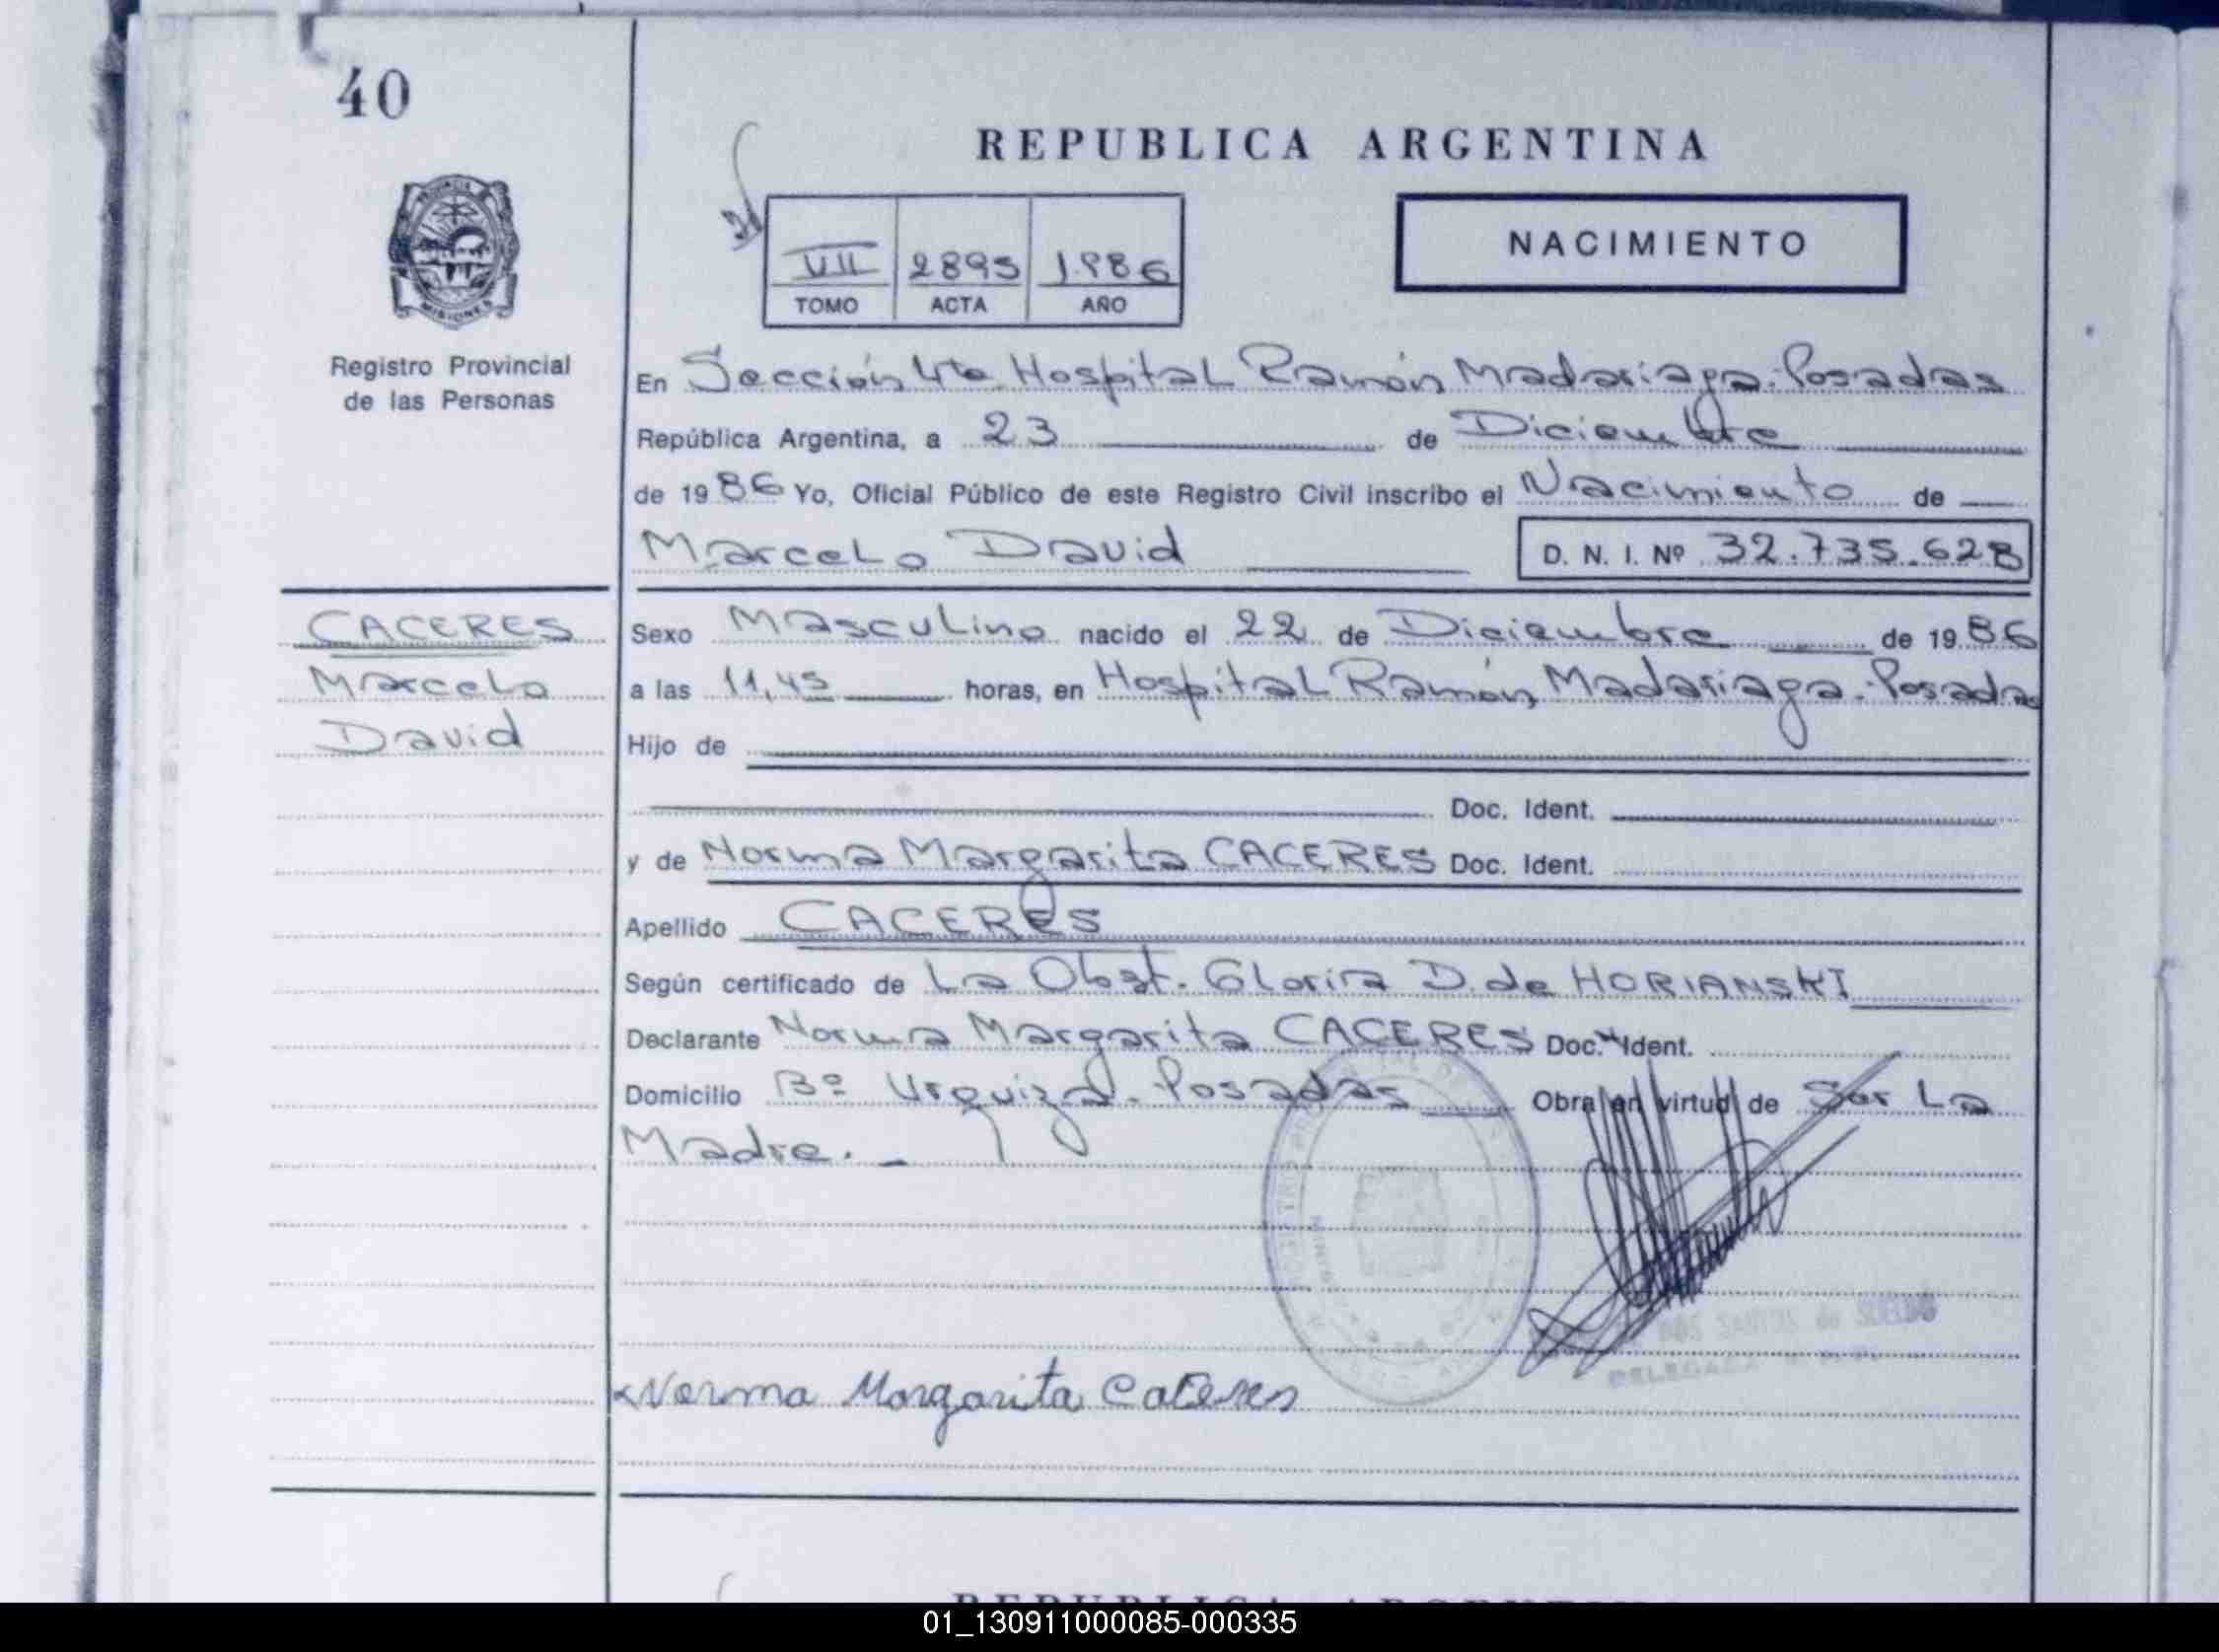 40
REPUBLICA ARGENTINA
PROVINCIA
MISIONES
NACIMIENTO
VII 2895 1.986
TOMO ACTA AÑO
Registro Provincial
de las Personas
En Sección 4ta Hospital Ramón Madariaga. Posadas
República Argentina, a 23 de Diciembre
de 1986 Yo, Oficial Público de este Registro Civil inscribo el Nacimiento de
Marcelo David D. N. I. Nº 32.735.628
CACERES
Marcelo
David
Sexo Masculino nacido el 22 de Diciembre de 1986
a las 11,45 horas, en Hospital Ramón Madariaga. Posadas
Hijo de
Doc. Ident.
y de Norma Margarita CACERES Doc. Ident.
Apellido CACERES
Según certificado de La Obst. Gloria D. de HORIANSKI
Declarante Norma Margarita CACERES Doc. Ident.
Domicilio Bº Urquiza. Posadas Obra en virtud de Ser La
Madre. -
DOS SANTOS de
DELEGADA
Norma Margarita Caceres
REPUBLICA ARGENTINA
01_130911000085-000335